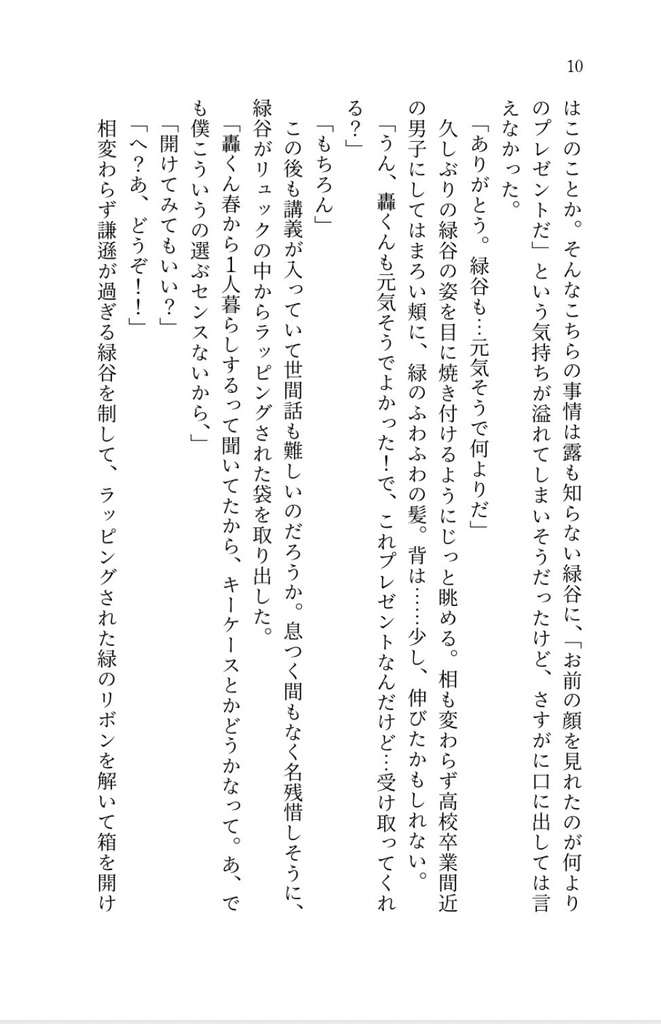 10
はこのことか。そんなこちらの事情は露も知らない緑谷に、「お前の顔を見れたのが何より
のプレゼントだ」という気持ちが溢れてしまいそうだったけど、さすがに口に出しては言
えなかった。
「ありがとう。緑谷も…元気そうで何よりだ」
久しぶりの緑谷の姿を目に焼き付けるようにじっと眺める。相も変わらず高校卒業間近
の男子にしてはまろい頬に、緑のふわふわの髪。背は……少し、伸びたかもしれない。
「うん、轟くんも元気そうでよかった！で、これプレゼントなんだけど…受け取ってくれ
る？」
「もちろん」
この後も講義が入っていて世間話も難しいのだろうか。息つく間もなく名残惜しそうに、
緑谷がリュックの中からラッピングされた袋を取り出した。
「轟くん春から1人暮らしするって聞いてたから、キーケースとかどうかなって。あ、で
も僕こういうの選ぶセンスないから、」
「開けてみてもいい？」
「へ？あ、どうぞ！！」
相変わらず謙遜が過ぎる緑谷を制して、ラッピングされた緑のリボンを解いて箱を開け